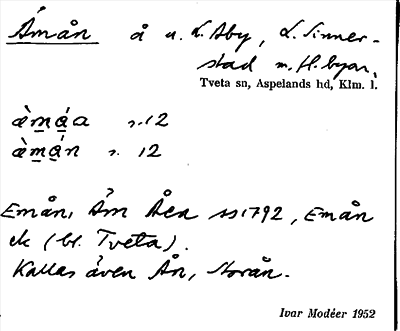 Åmån å n. L. Aby, L. Sinner-
stad m. fl. byar.
Tveta sn, Aspelands hd, Klm. l.
æ̀má̱a n. 12
æ̀má̱n n. 12
Emån, Åm Åea ss 1792, Emån
ek (bl. Tveta).
Kallas även Ån, Storån.
Ivar Modéer 1952